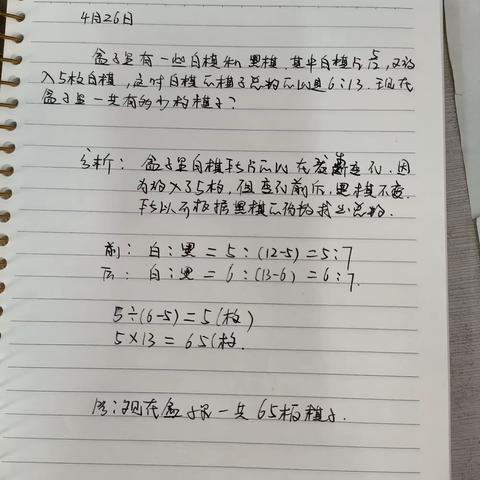 4月26日
盒子里有一些白棋和黑棋,其中白棋占5/12,又放
入5枚白棋,这时白棋和棋子总数的比是6:13.现在
盒子里一共有多少枚棋子?
分析:盒子里白棋所占的比在变化,因
为放入了5枚,但变化前后,黑棋不变.
所以可根据黑棋的份数求出总数.
前:白:黑=5:(12-5)=5:7
后:白:黑=6:(13-6)=6:7.
5÷(6-5)=5(枚)
5×13=65(枚.
答:现在盒子里一共65枚棋子.